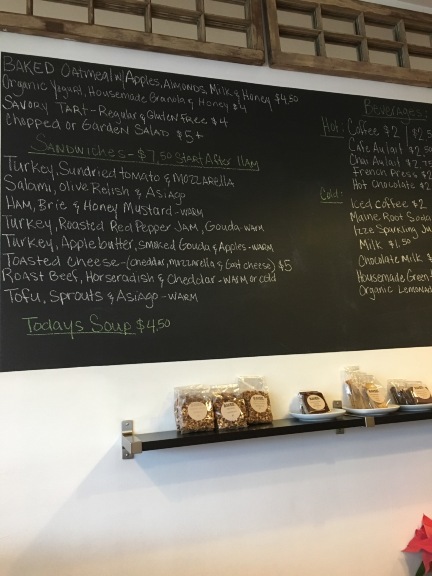 BAKED Oatmeal w/ Apples, Almonds, Milk & Honey $4.50
Organic Yogurt, Housemade Granola & Honey $4
Savory Tart - Regular & Gluten Free $4
Chopped or Garden Salad $5+
Sandwiches - $7.50 Start After 11AM
Turkey, Sundried tomato & Mozzarella
Salami, Olive Relish & Asiago
Ham, Brie & Honey Mustard - warm
Turkey, Roasted Red Pepper Jam, Gouda - warm
Turkey, Apple butter, smoked Gouda & Apples - warm
Toasted Cheese - (cheddar, mozzarella & Goat cheese) $5
Roast Beef, Horseradish & Cheddar - warm or cold
Tofu, Sprouts & Asiago - warm
Todays Soup $4.50
Beverages:
Hot: Coffee $2 | $2.5
Cafe Au lait $2.50
Chai Au lait $2.75
French Press $2
Hot Chocolate $2
Cold: Iced coffee $2
Maine Root Soda
Izze Sparkling Ju
Milk $1.50
Chocolate Milk $
Housemade Green
Organic Lemonad